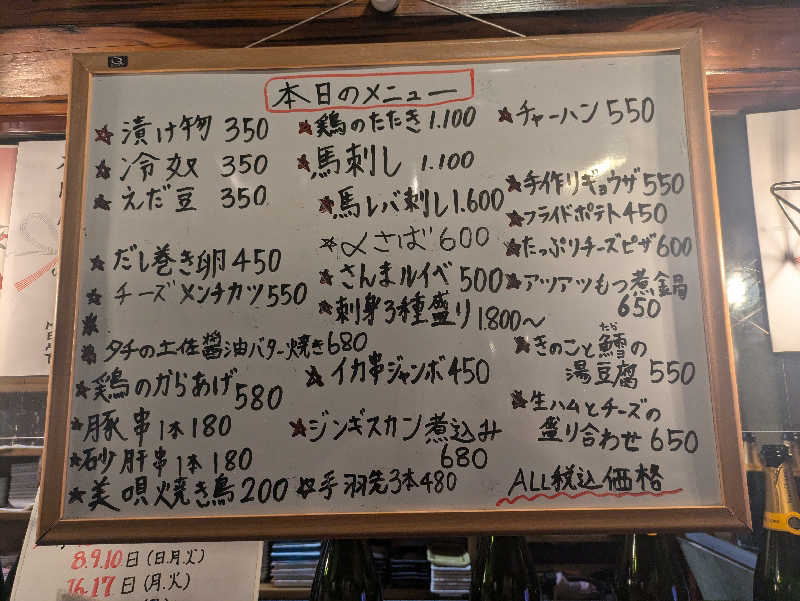 本日のメニュー
★漬け物 350
★冷奴 350
★えだ豆 350
★だし巻き卵 450
★チーズメンチカツ 550
★タチの土佐醬油バター焼き680
★鶏のからあげ580
★豚串1本180
★砂肝串1本180
★美唄焼き鳥200
★鶏のたたき1.100
★馬刺し 1.100
★馬レバ刺し1.600
★〆さば600
★さんまルイベ500
★刺身3種盛り1.800〜
★イカ串ジャンボ450
★ジンギスカン煮込み
680
☆手羽先3本480
★チャーハン 550
★手作りギョウザ550
★フライドポテト450
★たっぷりチーズピザ600
★アツアツもつ煮鍋
650
★きのこと鱈の
たら
湯豆腐 550
★生ハムとチーズの
盛り合わせ650
ALL税込価格
8.9.10.日(日.月.火)
16.17日(月.火)